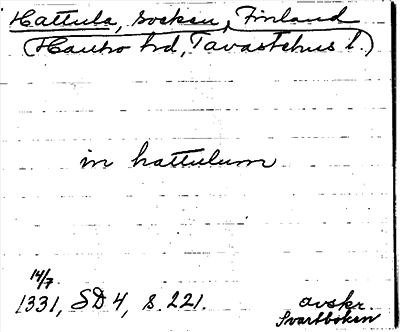 Hattula, socken, Finland
(Hauho hd, Tavastehus l.)
in hattulum
14/7
1331, SD 4, s. 221.
avskr.
Svartboken